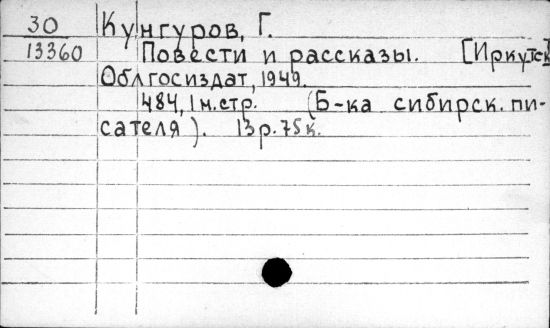 30 Кунгуров, Г.
13360 Повести и рассказы. [Иркутск]
Облгосиздат, 1949.
484, 1 н.стр. (Б-ка сибирск. пи-
сателя). 13 р. 75 к.